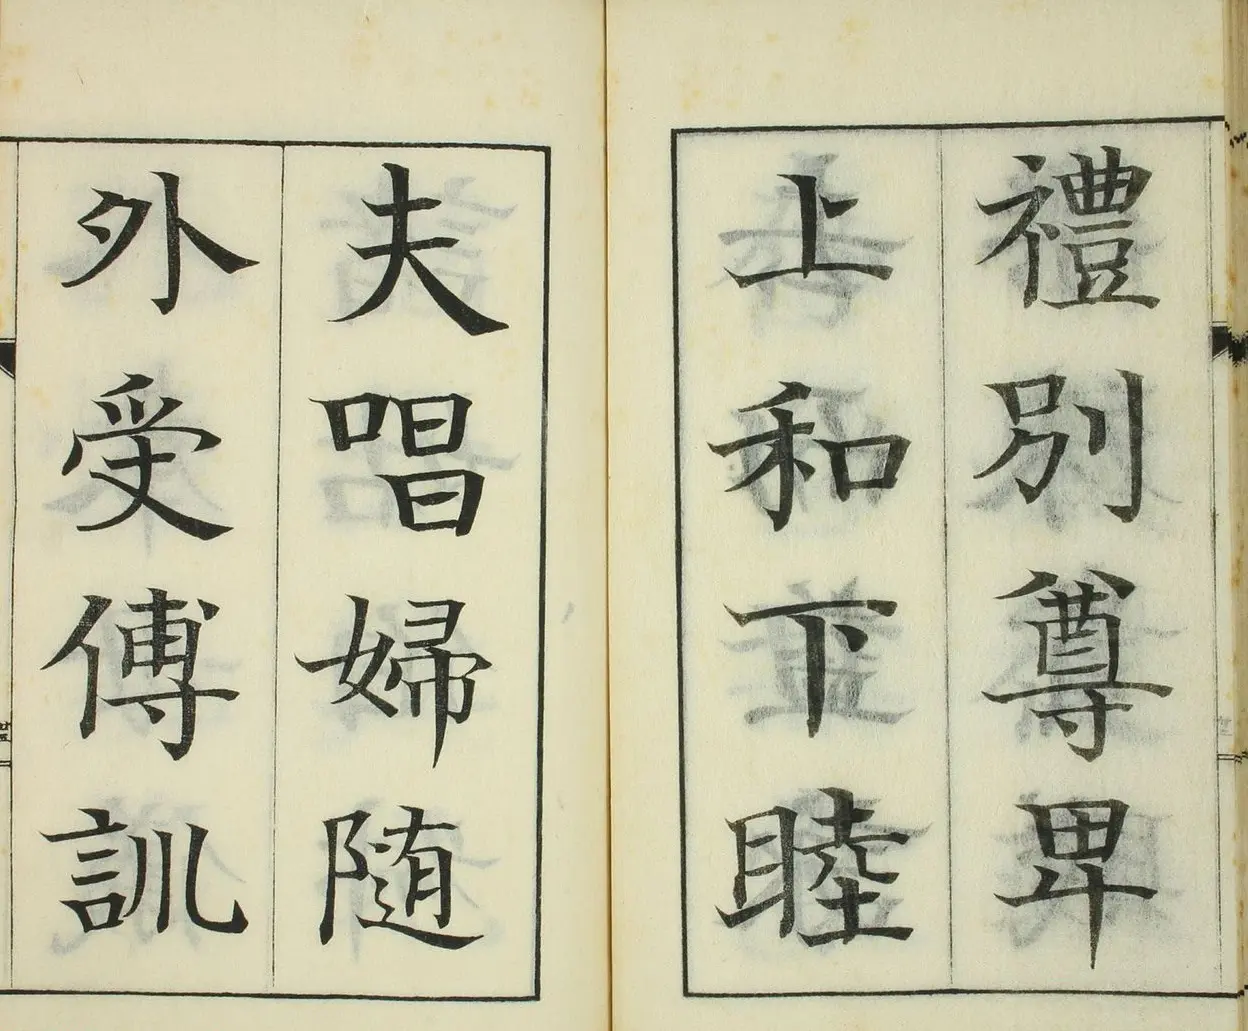 禮別尊卑
上和下睦
夫唱婦随
外受傅訓